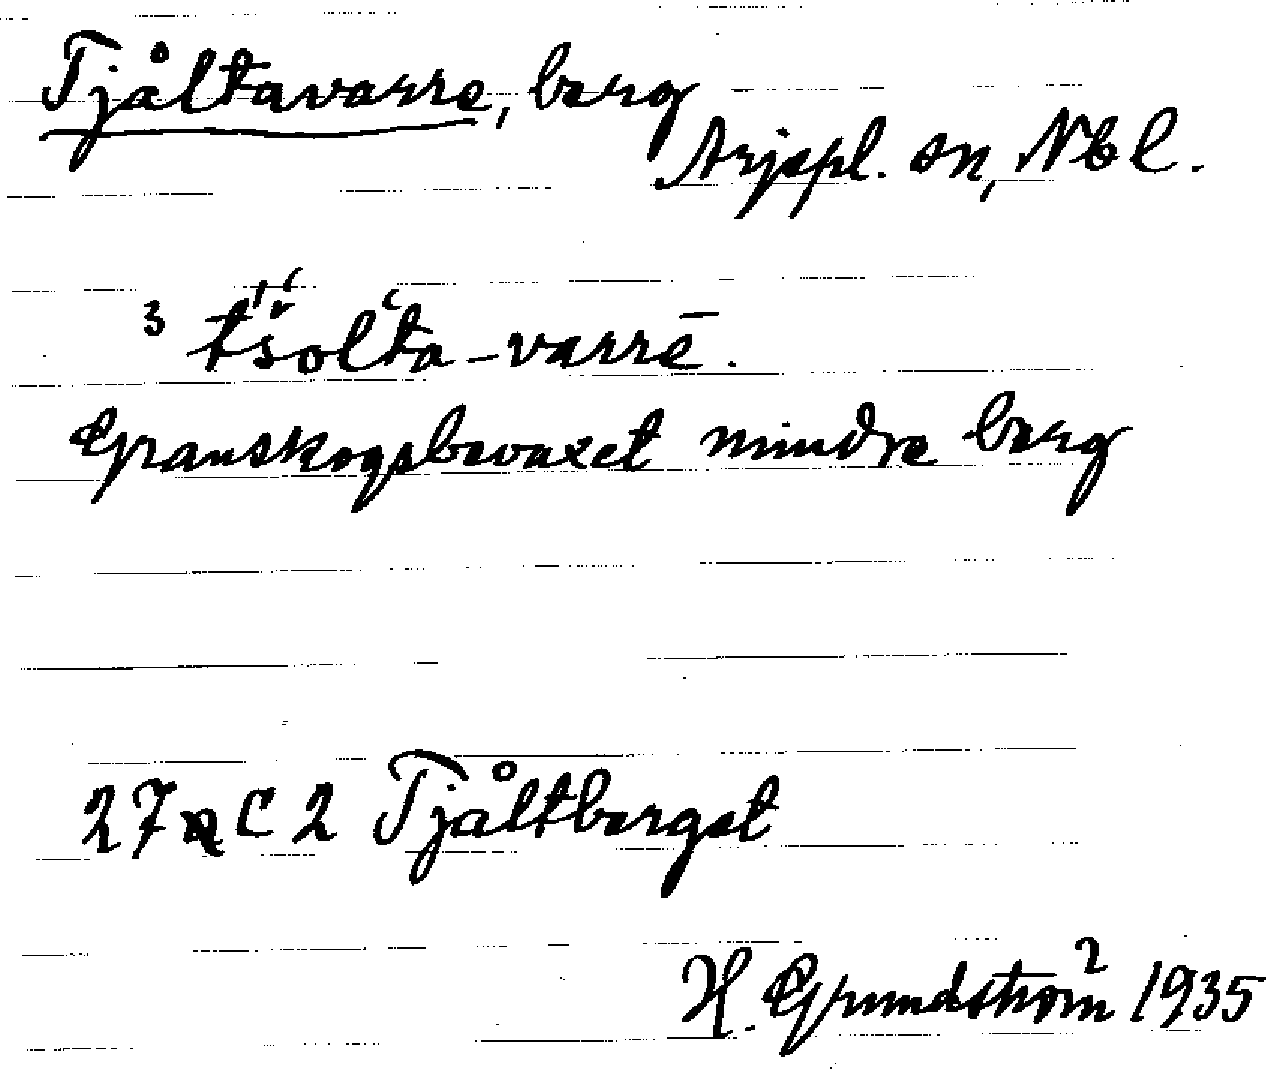 Tjåltavarre, berg
Arjepl. sn, Nbl.
3 tš́ολ̔ta-varrē.
Granskogsbevuxet mindre berg
27 a C 2 Tjåltberget
H. Grundström 1935